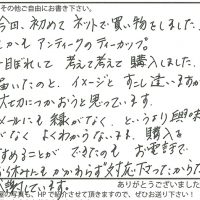 その他ご自由にお書き下さい。
今回、初めてネットで買い物をしました。
しかもアンティークのティーカップ。
目ぼれして考えて考えて購入しました。
届いたのと、イメージとすこし違いますが
大切につかおうと思っています。
メールにも縁がなく、というより興味
がなく よくわからないまま、購入を
すめることができたのもお電話で
お休みにもかかわらず対応下さって、からだ
感謝しています。
ありがとうございました
の写真も、HPで紹介させて頂きますので、ぜひお送り下さい!